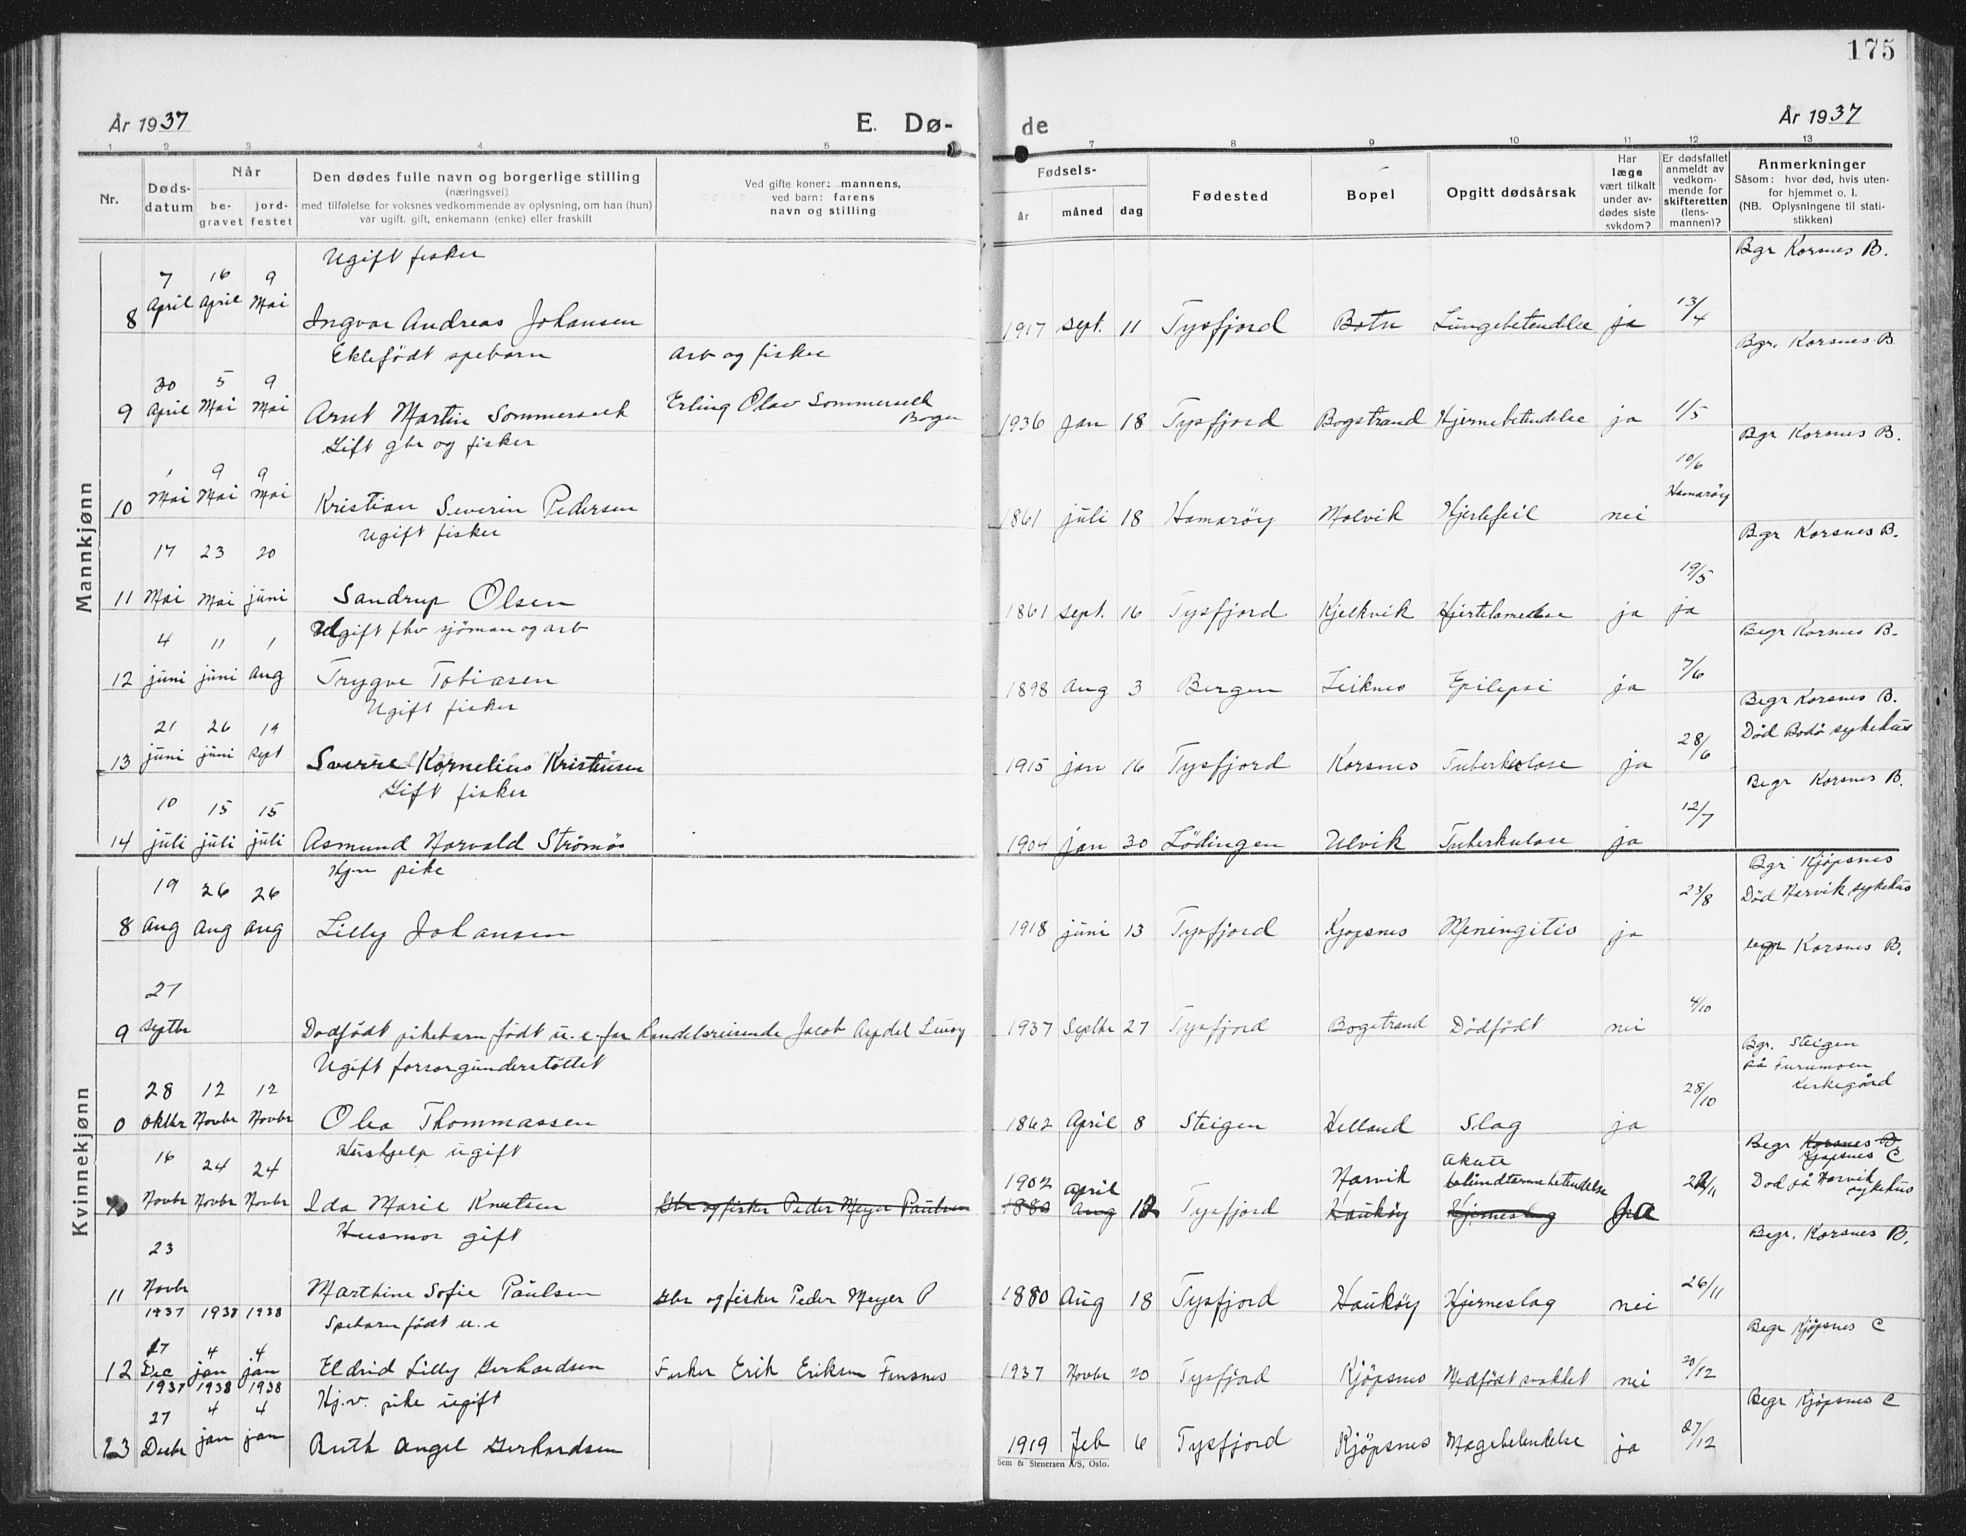 175
År 1937
E. Dø- de
År 1937
1 2 3 4 5 7 8 9 10 11 12 13
Nr.
Døds-datum
Når
be-gravet
jord-festet
Den dødes fulle navn og borgerlige stilling
(næringsvei)
med tilføielse for voksnes vedkommende av oplysning, om han (hun)
var ugift, gift, enkemann (enke) eller fraskilt
Ved gifte koner: mannens,
ved barn: farens
navn og stilling
Fødsels-
år måned dag
Fødested
Bopel
Opgitt dødsårsak
Har læge vært tilkalt under av-dødes siste sykdom?
Er dødsfallet anmeldt av vedkom-mende for skifteretten (lens-mannen)?
Anmerkninger
Såsom: hvor død, hvis uten-for hjemmet o. l.
(NB. Oplysningene til stati-stikken)
Mannkjønn
Ugift fisker Bgr Korsnes B.
8 7 April 16 April 9 Mai Ingvar Andreas Johansen 1917 sept. 11 Tysfjord Botn Lungebetendelse ja 13/4
Ektefödt spebarn arb og fisker Bgr. Korsnes B
9 30 April 5 Mai 9 Mai Arnt Martin Sommerseth Erling Olav Sommerseth Bogen 1936 Jan 18 Tysfjord Bogstrand Hjernebetendelse ja 1/5
Gift gbr og fisker Bgr Korsnes B.
10 1 Mai 9 Mai 9 Mai Kristian Severin Pedersen 1861 juli 18 Hamaröy Molvik Hjertefeil nei 10/6 Hamaröy
Ugift fisker Bgr Korsnes B.
11 17 Mai 23 Mai 20 juni Sandrup Olsen 1861 sept. 16 Tysfjord Kjelkvik Hjertelamelse ja 19/5 ja
Ugift fhv sjöman og arb Begr Korsnes B.
12 4 juni 11 juni 1 Aug Trygve Tobiasen 1898 Aug 3 Bergen Leiknes Epilepsi ja 7/6
Ugift fisker Begr Korsnes B.
13 21 juni 26 juni 19 sept Sverre Kornelius Kristiansen 1915 jan 16 Tysfjord Korsnes Tuberkulose ja 28/6 Död Bodö sykehus
Gift fisker Begr Korsnes B.
14 10 juli 15 juli 15 juli Asmund Harvald Strömös 1904 jan 30 Lödingen Ulvik Tuberkulose ja 12/7
Kvinnekjønn
Hj.v. pike Bgr Kjöpsnes
8 19 Aug 26 Aug 26 Aug Lilly Johansen 1918 juni 13 Tysfjord Kjöpsnes Meningitis ja 23/8 Död Narvik sykehus
begr Korsnes B.
9 27 Septbr Dødfödt pikebarn födt u. e. far Handelsreisende Jacob 1937 Septbr 27 Tysfjord Bogstrand Dödfödt nei 4/10
Ugift forsorgunderstöttet Bgr. Steigen på Furumoen Kirkegård
0 28 Oktbr 12 Novbr 12 Novbr Olea Thommassen 1862 April 8 Steigen Helland Slag ja 28/10
Hushjelp ugift Begr Korsnes B Kjöpsnes C
10 16 Novbr 24 Novbr 24 Novbr Ida Marie Knutsen Gbr og fisker Peder Meyer Paulsen 1902 1880 April Aug 12 Tysfjord Narvik Hauköy Akute blindtarmbetendelse Hjerneslag ja 22/11 Död på Narvik sykehus
Husmor gift Begr. Korsnes B.
11 23 Novbr Marthine Sofie Paulsen Gbr og fisker Peder Meyer P 1880 Aug 18 Tysfjord Hauköy Hjerneslag nei 26/11
1937 1938 1938 Spebarn födt u. e Begr Kjöpsnes C
12 17 Dec 4 jan 4 jan Eldrid Lilly Gerhardsen Fisker Erik Eriksen Finsnes 1937 Novbr 20 Tysfjord Kjöpsnes Medfödt svakhet nei 20/12
1937 1938 1938 Hj.v. pike ugift Begr Kjöpsnes C
13 27 Decbr 4 jan 4 jan Ruth Angel Gerhardsen 1919 Feb 6 Tysfjord Kjöpsnes Magebetendelse ja 27/12
Sem & Stenersen A/S, Oslo.